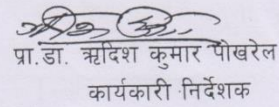 प्रा.डा. ऋदिश कुमार पोखरेल
कार्यकारी निर्देशक